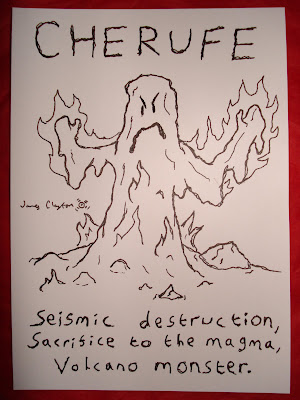 CHERUFE
James Clayton
Seismic destruction,
Sacrifice to the magma,
Volcano monster.